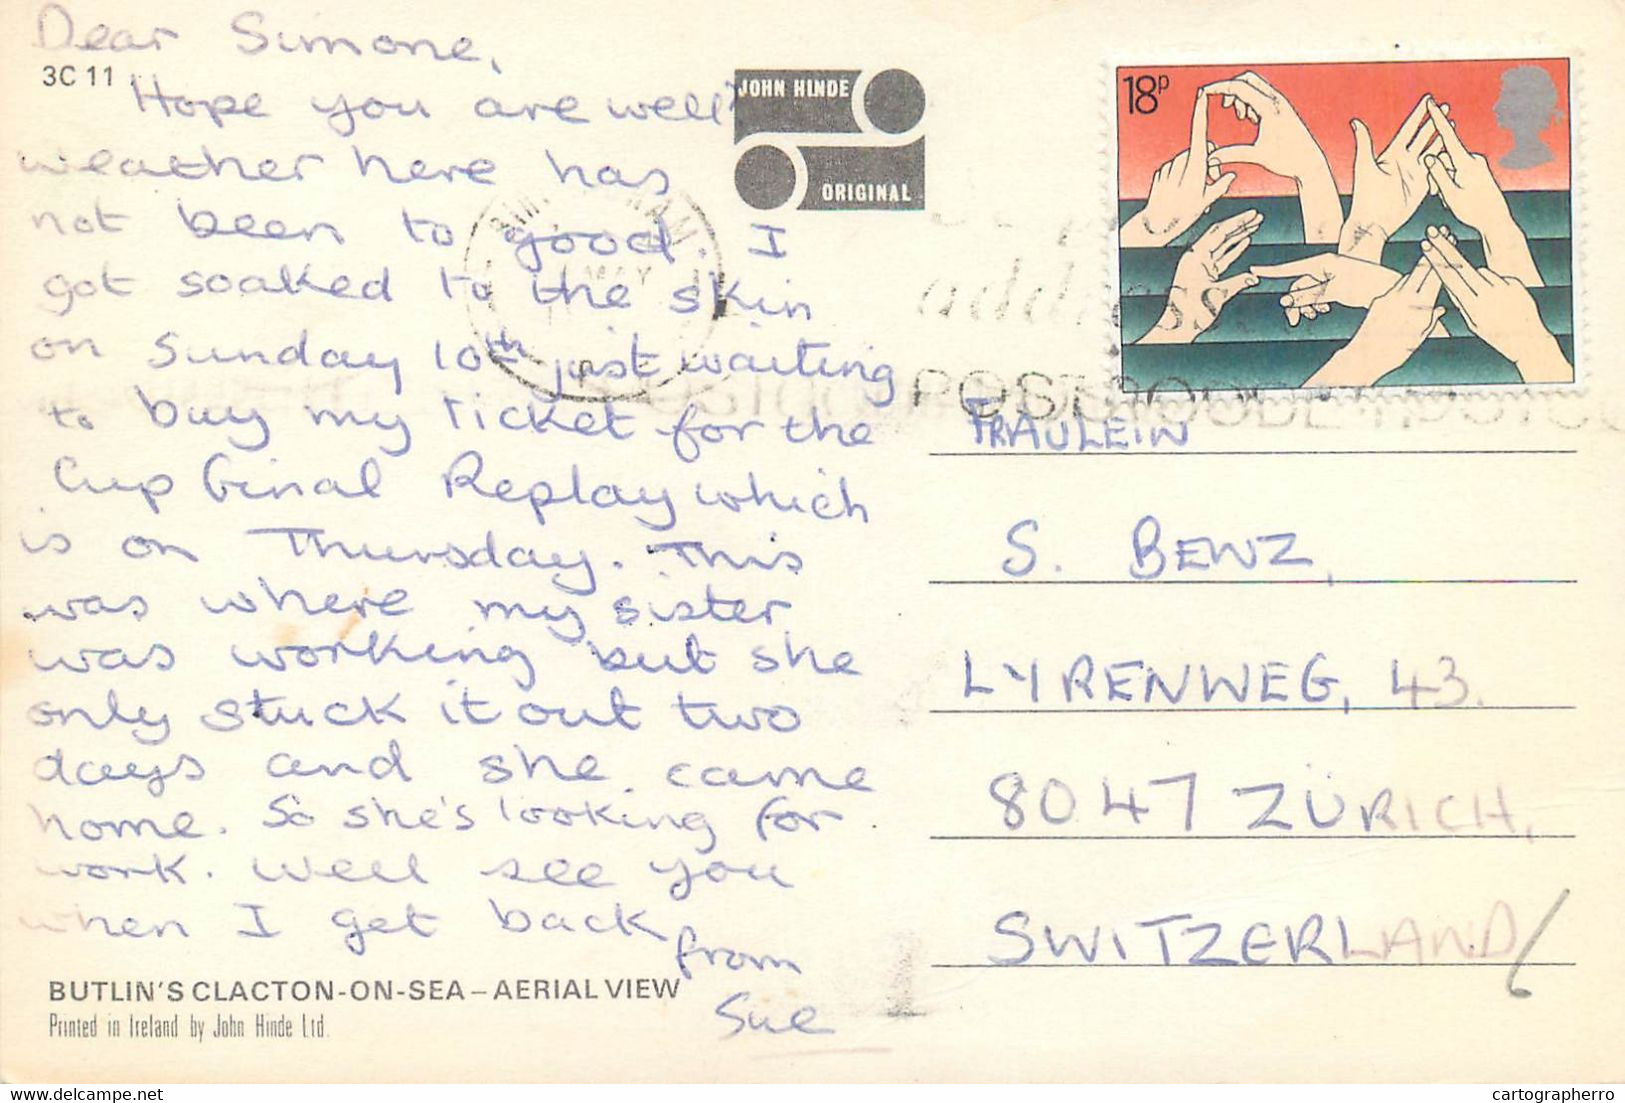 Dear Simone,
3C 11
Hope you are well
weather here has
not been to good. I
got soaked to the skin
on Sunday 10th just waiting
to buy my Ticket for the
Cup Final Replay which
is on Thursday. This
was where my sister
was working but she
only stuck it out two
days and she came
home. So she's looking for
work. Well see you
when I get back
from
Sue
BUTLIN'S CLACTON-ON-SEA – AERIAL VIEW
Printed in Ireland by John Hinde Ltd.
JOHN HINDE
ORIGINAL
18P
MAY
address
POSTCODE
FRAULEIN
S. BENZ,
LYRENWEG, 43.
8047 ZÜRICH,
SWITZERLAND
cartographerro